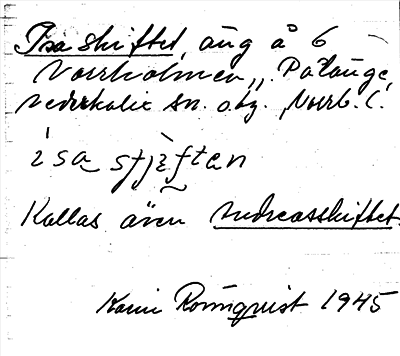 Isaskiftet, äng å 6
Norrholmen, Pålänge,
Nederkalix sn. o hg. Norrb. l.
i sa stjèften
Kallas även Andreasskiftet.
Karin Rönnqvist 1945